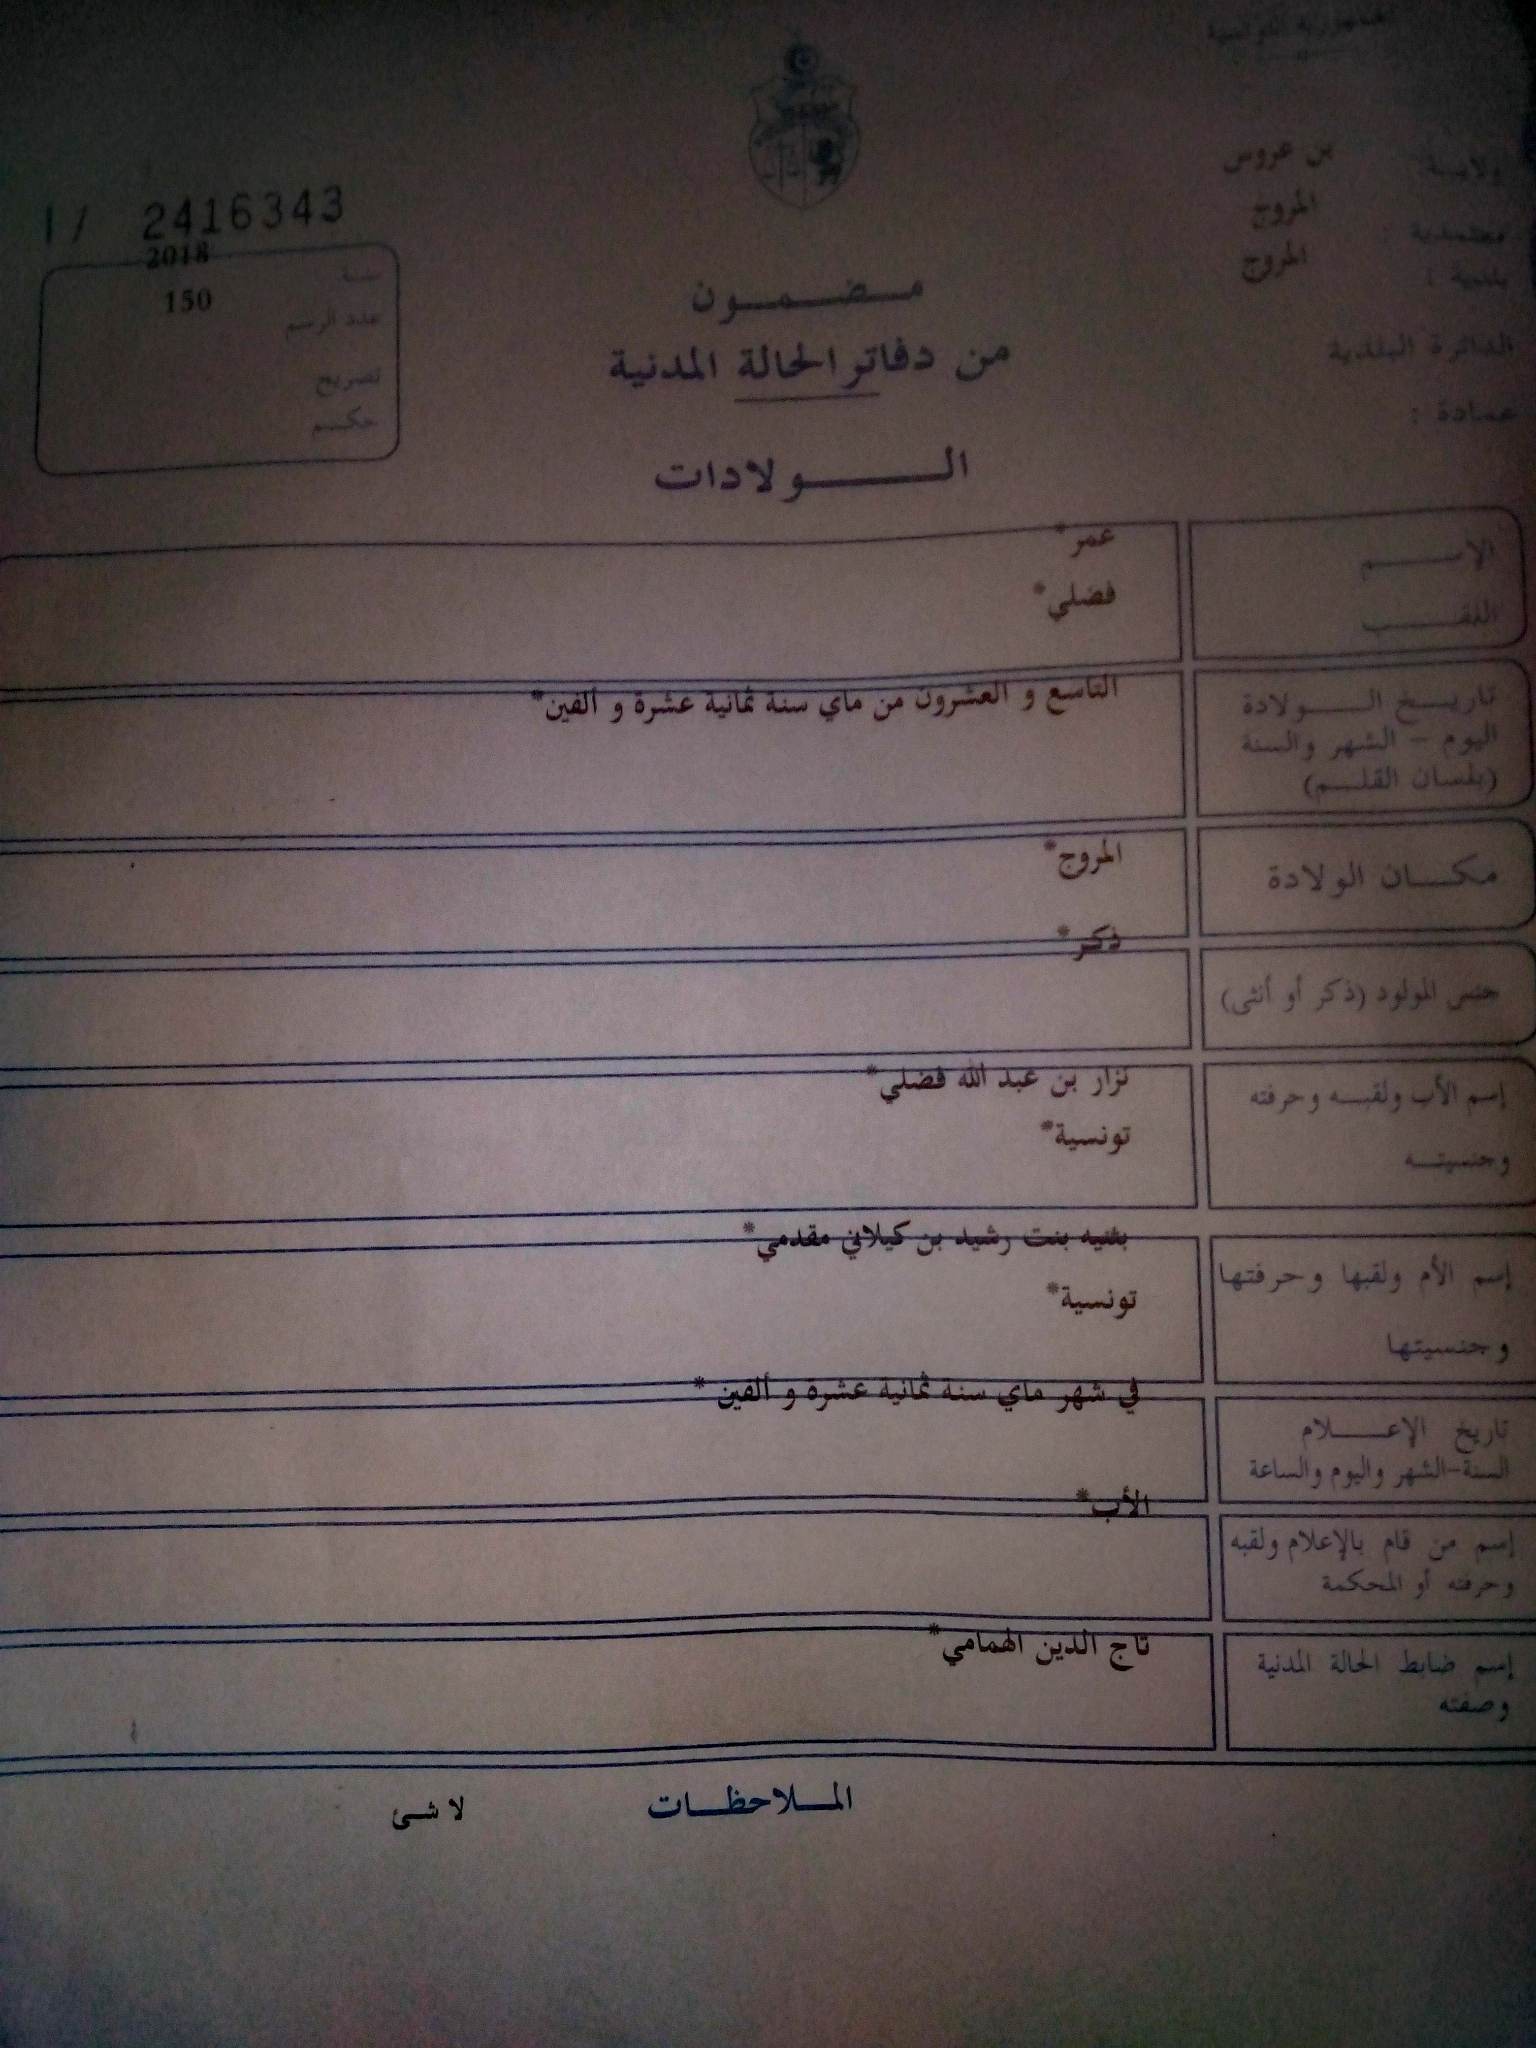 الجمهورية التونسية
ولاية بن عروس
معتمدية : المروج
بلدية : المروج
الدائرة البلدية
عمادة :
I / 2416343
سنة 2018
عدد الرسم 150
تصريح
حكم
مضمون
من دفاتر الحالة المدنية
الولادات
الإسم عمر*
اللقب فضلي*
تاريخ الولادة التاسع و العشرون من ماي سنة ثمانية عشرة و ألفين*
اليوم - الشهر والسنة
(بلسان القلم)
مكان الولادة المروج*
جنس المولود (ذكر أو أنثى) ذكر*
إسم الأب ولقبه وحرفته نزار بن عبد الله فضلي*
وجنسيته تونسية*
إسم الأم ولقبها وحرفتها بثنيه بنت رشيد بن كيلاني مقدمي*
وجنسيتها تونسية*
تاريخ الإعلام في شهر ماي سنة ثمانية عشرة و ألفين *
السنة-الشهر واليوم والساعة
إسم من قام بالإعلام ولقبه الأب*
وحرفته أو المحكمة
إسم ضابط الحالة المدنية تاج الدين الهمامي*
وصفته
الملاحظات لا شئ